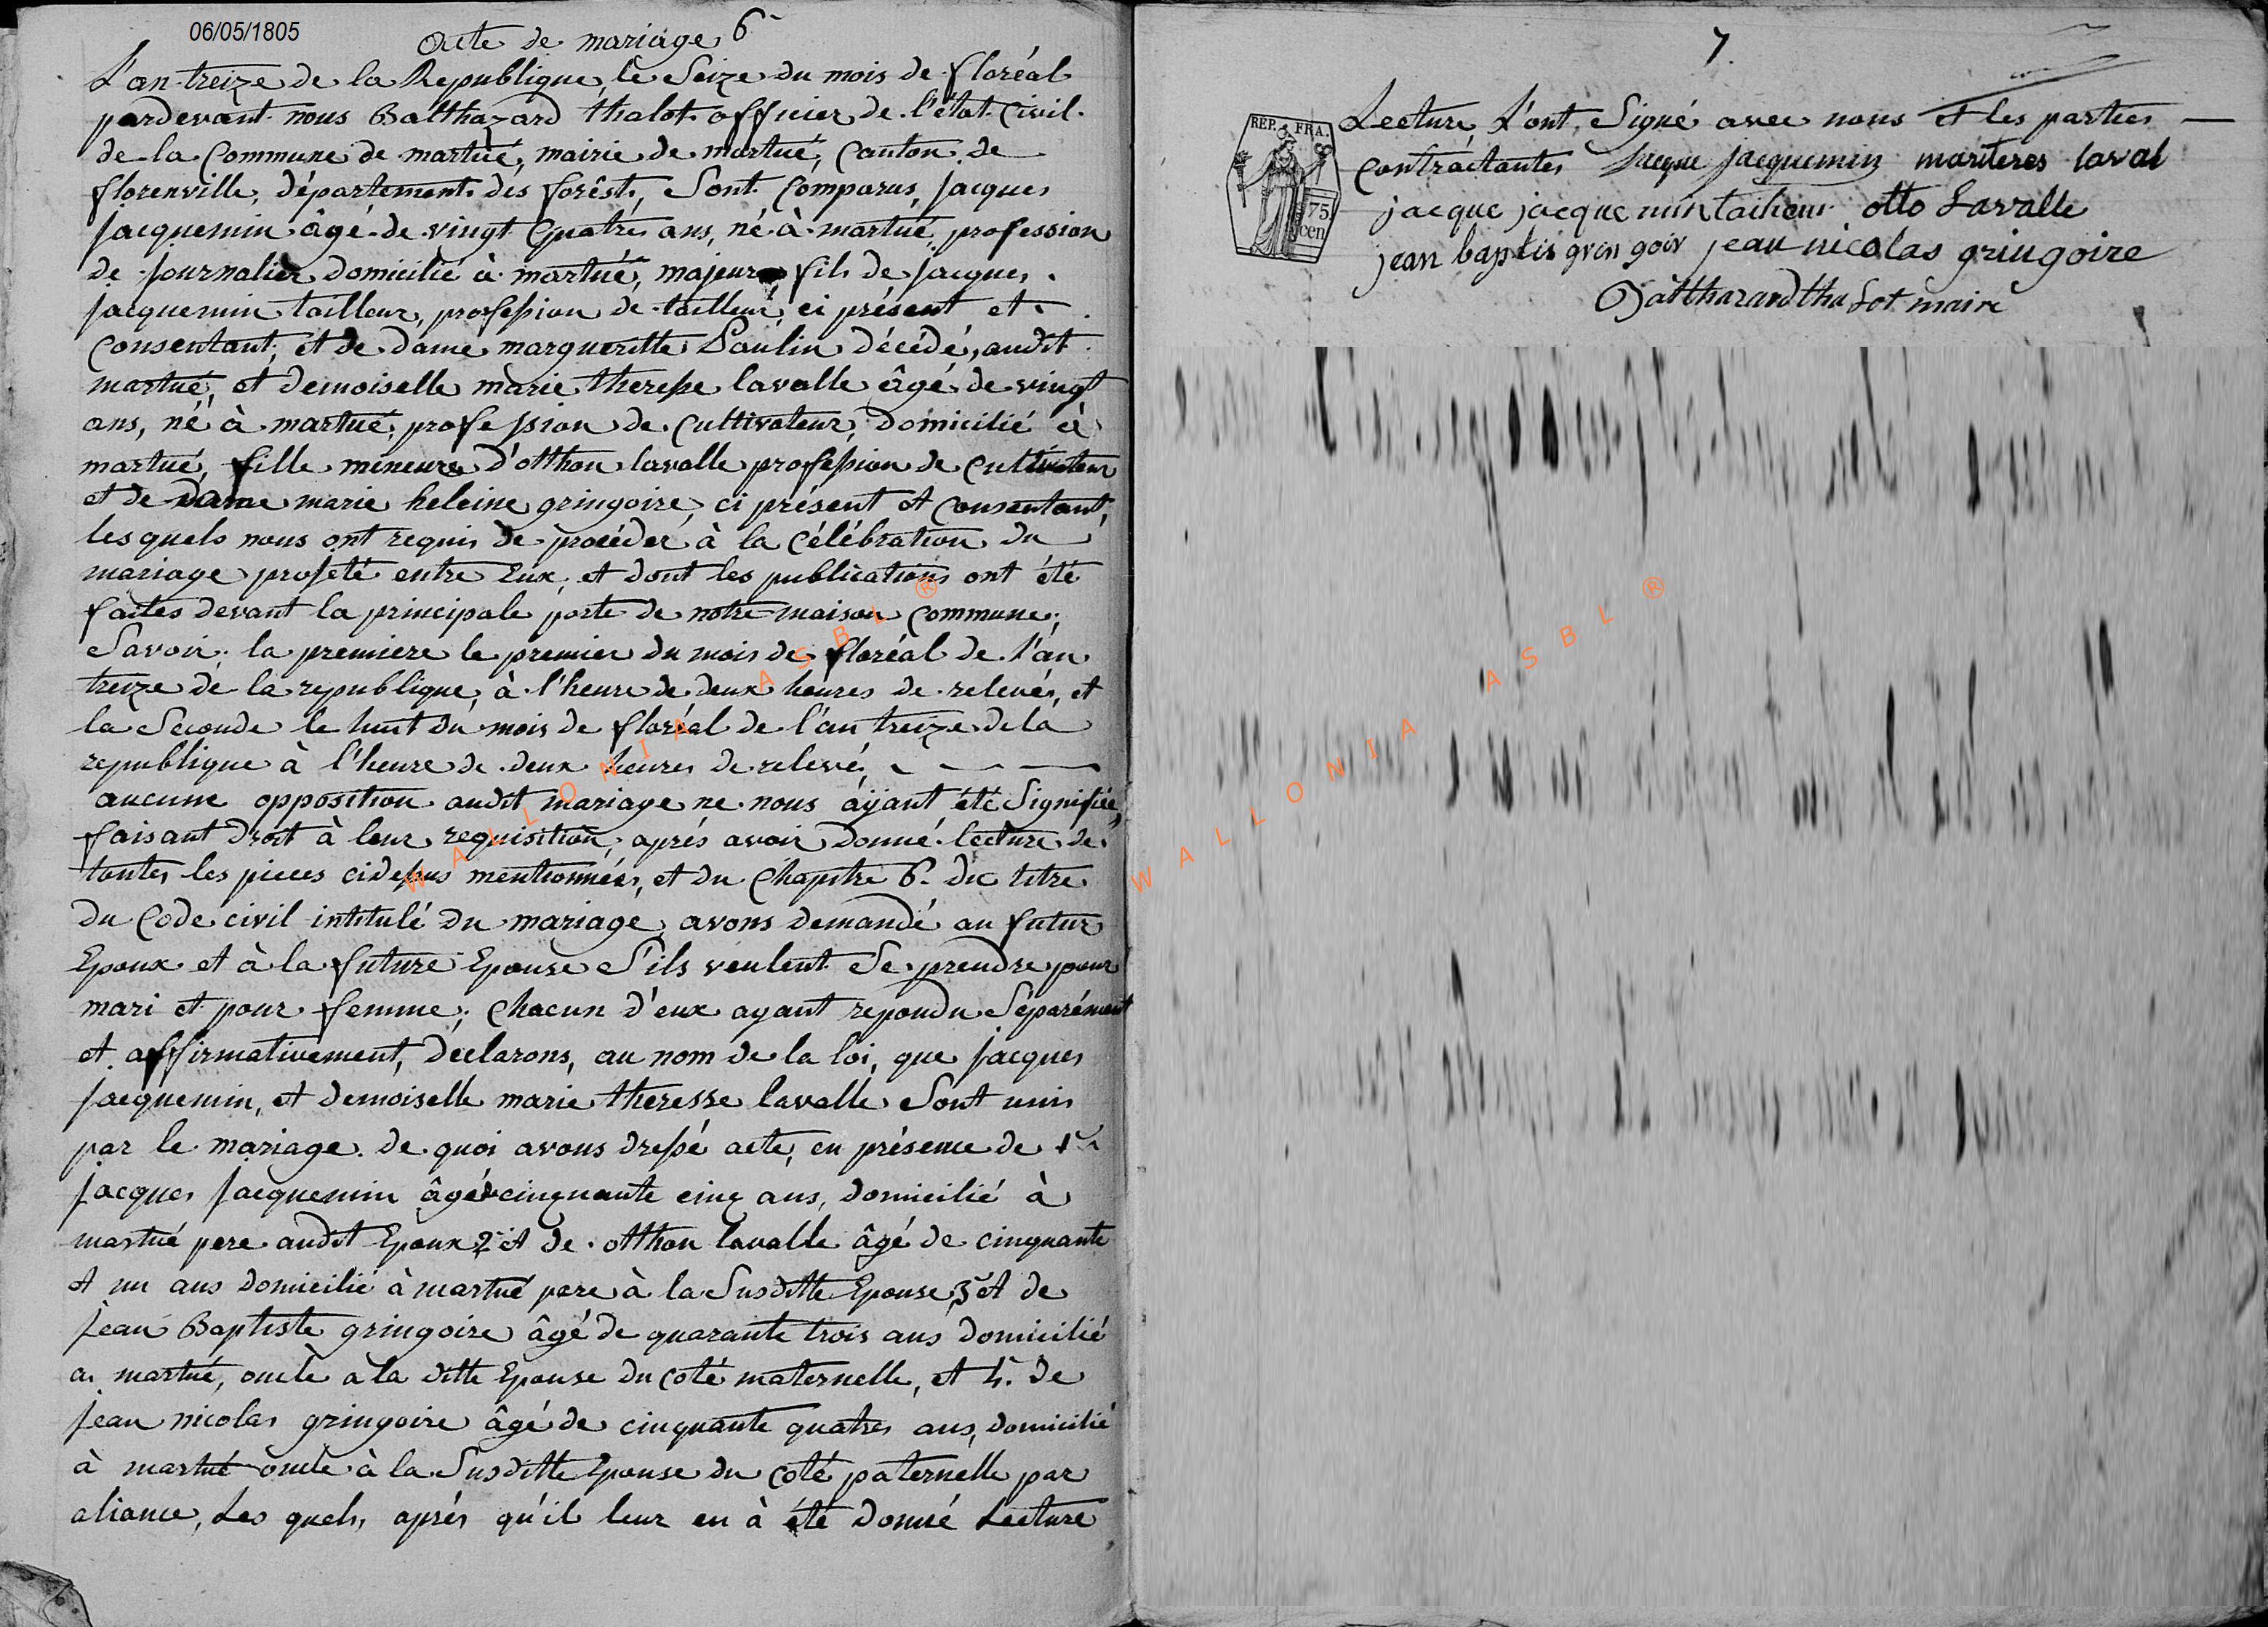 06/05/1805
Acte de mariage 6
L'an treize de la Republique, le Seize du mois de floréal
pardevant nous Balthazard thalot officier de l'état Civil
de la Commune de martué, mairie de martué, Canton de
florenville, département des forêst, Sont Comparus, jacques
jacquemin âgé de vingt quatres ans, né à martué, profession
de journalier domicilié à martué, majeur fils de jacques
jacquemin tailleur, profession de tailleur, ci présent et
consentant, et de dame marguerite Paulin décédé, audit
martué, et demoiselle marie therese lavalle âgé de vingt
ans, né à martué, profession de Cultivateur, domicilié à
martué, fille mineure d'otthon lavalle profession de Cultivateur
et de dame marie heleine gringoire, ci présent et Consentant,
lesquels nous ont requis de procéder à la Célébration du
mariage projeté entre Eux, et dont les publications ont été
faites devant la principale porte de notre maison Commune;
Savoir; la premiere le premier du mois de floréal de l'an
treize de la republique, à l'heure de deux heures de relevés, et
la Seconde le huit du mois de floréal de l'an treize de la
republique à l'heure de deux heures de relevé,
aucune opposition audit mariage ne nous aÿant été Signifiée,
faisant droit à leur requisition, aprés avoir Donné lecture de
toutes les pieces cidessus mentionnées, et du Chapitre 6. du titre
du Code civil intitulé du mariage, avons demandé au futur
Epoux et à la future Epouse S'ils veulent Se prendre pour
mari et pour femme; Chacun d'eux ayant repondu Séparément
et affirmativement, déclarons, au nom de la loi, que jacques
jacquemin, et demoiselle marie theresse lavalle Sont unis
par le mariage. de quoi avons dressé acte, en présence de 1
jacques jacquemin âgé de cinquante cinq ans, domicilié à
martué pere audit Epoux 2 et de otthon lavalle âgé de cinquante
et un ans domicilié à martué pere à la Susditte Epouse, 3 et de
jean Baptiste gringoire âgé de quarante trois ans domicilié
a martué, oncle a la ditte Epouse du coté maternelle, et 4. de
jean nicolas gringoire âgé de cinquante quatres ans, domicilié
à martué oncle à la Susditte Epouse du coté paternelle par
aliance, Les quels, aprés qu'il leur en à été Donné Lecture
7
REP. FRA.
75
cen
Lecture, L'ont Signé avec nous et les parties
contractantes jacque jacquemin mariteres laval
jacque jacquemin tailieur otto Lavalle
jean baptis grin goir jean nicolas gringoire
Balthazard thalot maire
WALLONIA ASBL ®
WALLONIA ASBL ®